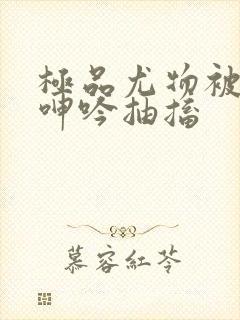 極品尤物被
呻吟抽搐
慕容紅苓